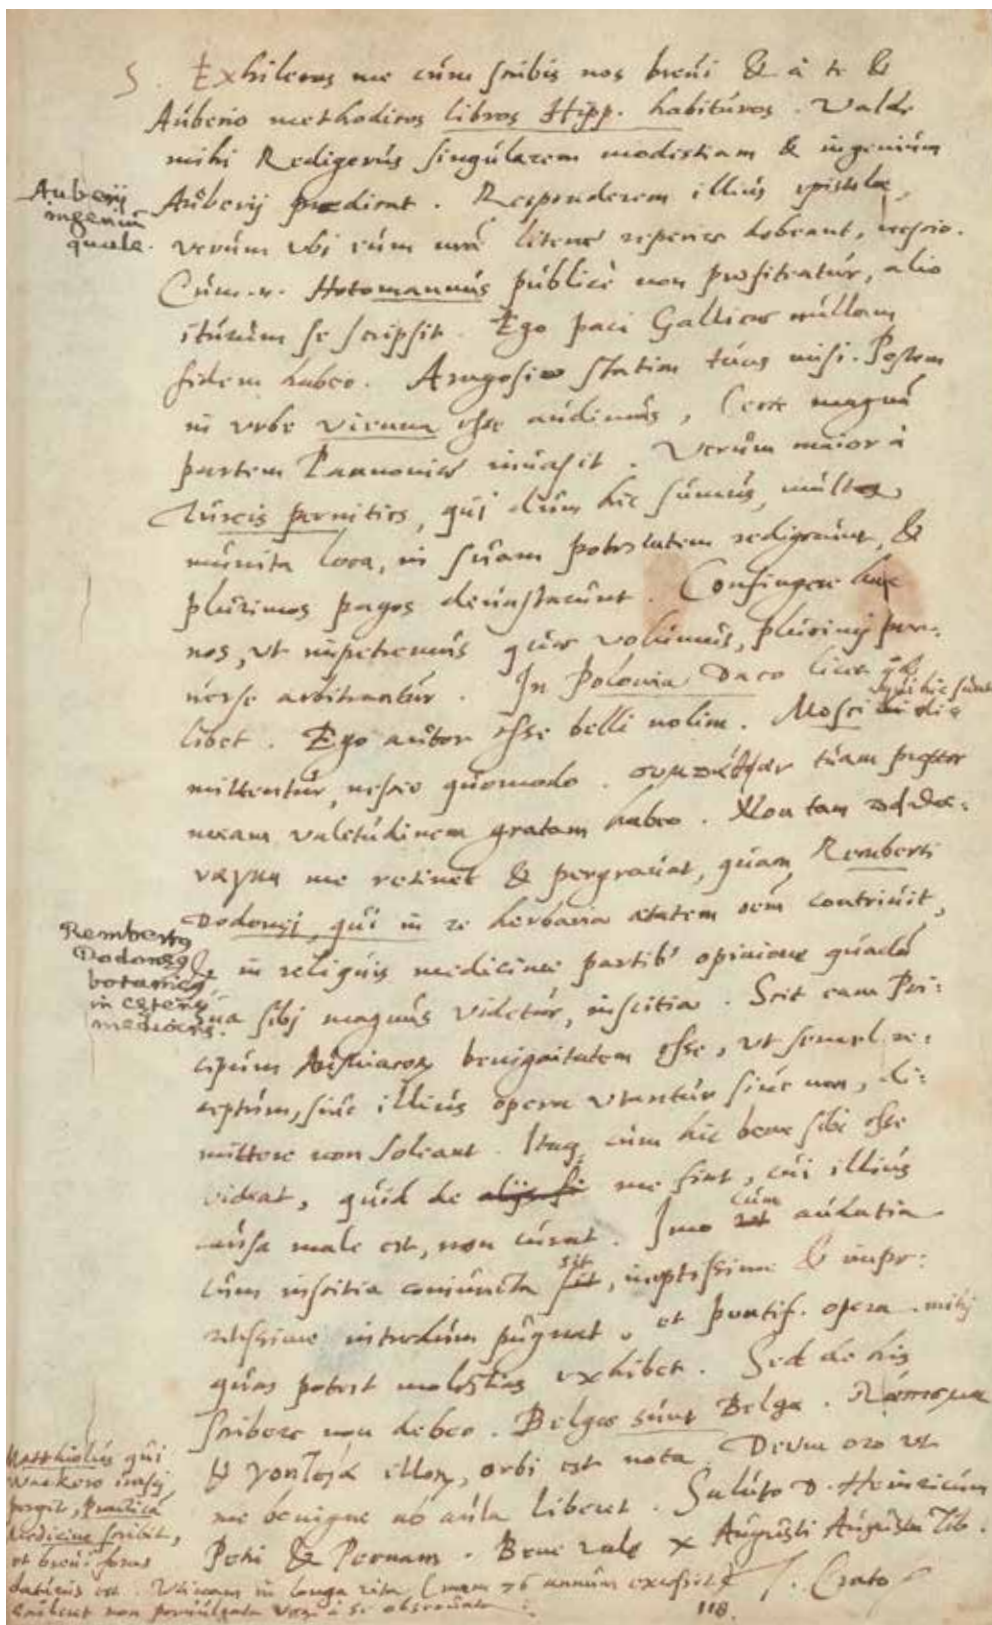 S. Exhileras me cùm scribis nos breui & à te &
Auberio methodicos libros Hipp. habituros. Valde
mihi Redigerus singularem modestiam & ingenium
Auberij prædicat. Responderem illius epistolæ,
verùm vbi cùm literæ habeant, nescio.
Cùm Hotomannus publicè non profiteatur, aliò
iturum se scripsit. Ego paci Gallicæ nullam
fidem habeo. statim tuas misi. Pestem
in vrbe Vienna esse audimus, Certè magnā
partem Pannoniæ inuasit. Verùm maior à
Turcis pernities, qui dum hic sumus, multa
munita loca, in suam potestatem redigerunt, &
plurimos pagos deuastarunt. Confingere
nos, vt impetremus quæ volumus, plurimi per-
arbitrantur. In Polonia Daco licet qd
libet. Ego autor esse belli nolim. Mosci
qui hic sunt
mittentur, nescio quomodo. tuam propter
meam valetudinem gratam habeo. Non tam
me retinet & pergrauat, quam Remberti
Dodonej, qui in re herbaria ætatem oem contriuit,
& in reliquis medicinæ partib' opinione quadā
sua sibj magnus videtur, inscitia. Scit eam Prī-
cipum benignitatem esse, vt semel re-
ceptum, siue illius opera vtantur siue non, di-
mittere non soleant. Itaq cùm hic bene sibi esse
videat, quid de me fiat, cui illius
causa male est, non curat. Imo cùm audatia
cum inscitia coniuncta sit, ineptissime &
interdum pugnat, et pontif. opera mihj
quas potest molestias exhibet. Sed de his
scribere non debeo. Belgæ sunt Belgæ.
& illor, orbi est nota. Deum oro vt
me benigne ab aula liberet. Saluto D. Heinricum
Petri & Pernam. Bene vale X Augusti Augustæ
J. Crato
118.
Auberij
ingeniū
quale.
Rembertus
Dodonæus
botanicus
in ceteris
mediocris.
Matthiolus qui
pergit, Practicā
Medicinæ scribit,
et breui foras
daturus est. Vtinam in longa vita (nam 76 annum excessit)
non peruulgata à se obseruata